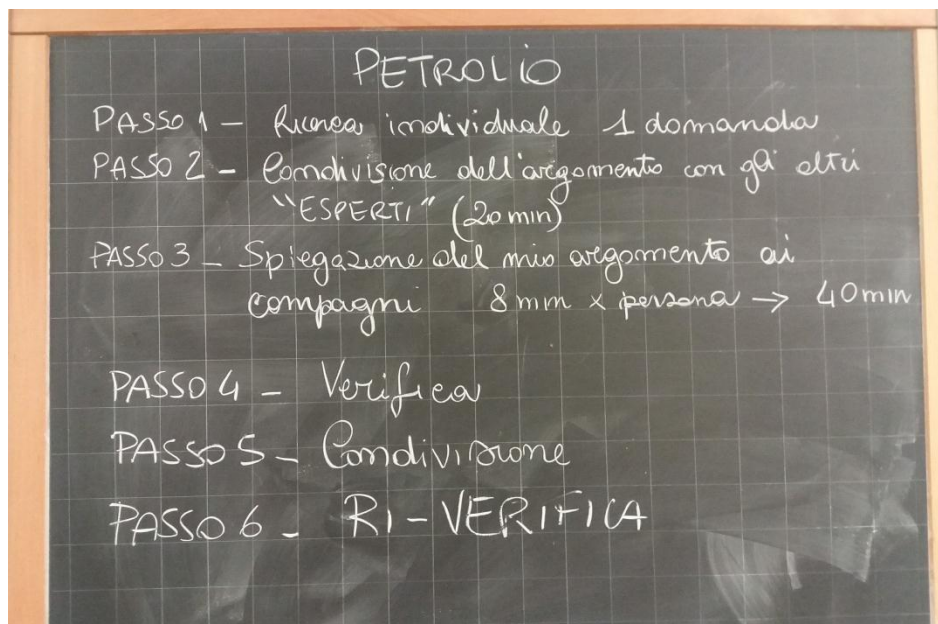 PETROLIO
PASSO 1 - Ricerca individuale 1 domanda
PASSO 2 - Condivisione dell'argomento con gli altri
"ESPERTI" (20 min)
PASSO 3 - Spiegazione del mio argomento ai
compagni 8 min x persona → 40 min
PASSO 4 - Verifica
PASSO 5 - Condivisione
PASSO 6 - RI-VERIFICA